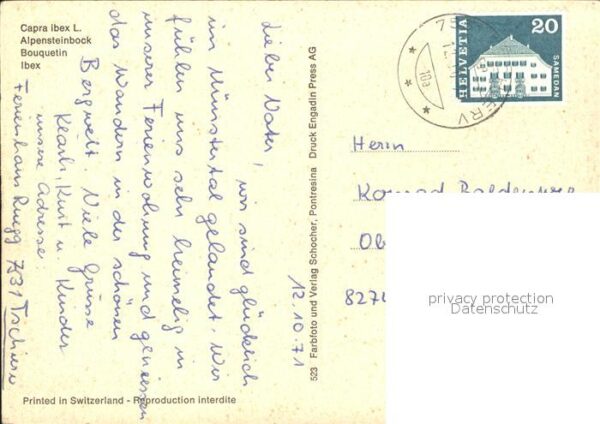 Capra ibex L.
Alpensteinbock
Bouquetin
Ibex
12.10.71
Lieber Vater,
wir sind glücklich
im Münstertal gelandet. Wir
fühlen uns sehr heimelig in
unserer Ferienwohnung und geniessen
das Wandern in der schönen
Bergwelt. Viele Grüsse
Kurt u. Kinder
unsere Adresse
Ferienhaus Ruegg 7531 Tschierv
523 Farbfoto und Verlag Schocher, Pontresina Druck Engadin Press AG
Printed in Switzerland - Reproduction interdite
HELVETIA
20
SAMEDAN
75
10a
ERV
Herrn
Konrad
Ob
827
privacy protection
Datenschutz